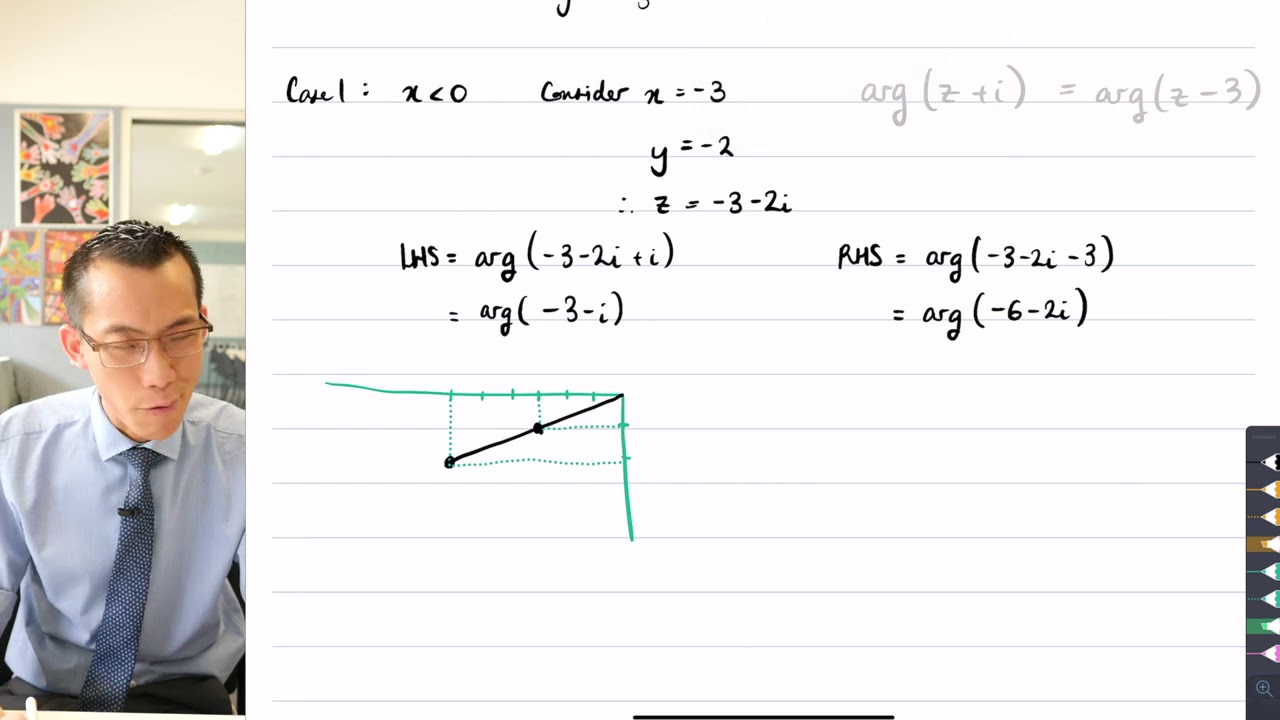 Case 1 : x < 0 Consider x = -3 arg(z + i) = arg(z - 3)
y = -2
∴ z = -3 - 2i
LHS = arg(-3 - 2i + i) RHS = arg(-3 - 2i - 3)
= arg(-3 - i) = arg(-6 - 2i)